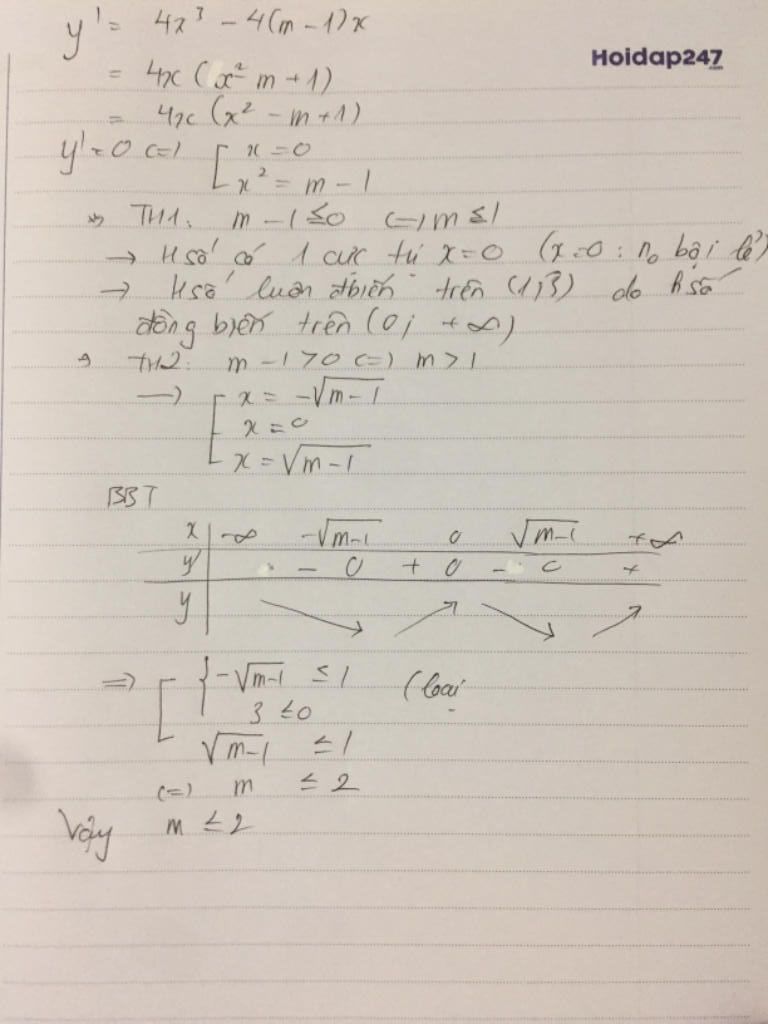 y' = 4x³ - 4(m-1)x
Hoidap247
= 4x (x² m + 1)
= 4x (x² - m + 1)
y' = 0 (=) [ x = 0
x² = m - 1
TH1: m - 1 ≤ 0 (=) m ≤ 1
→ Hsố có 1 cực trị x = 0 (x = 0 : no bội lẻ)
→ Hsố luôn đbiến trên (1;3) do hsố
đồng biến trên (0; +∞)
TH2: m - 1 > 0 (=) m > 1
→ [ x = -√(m-1)
x = 0
x = √(m-1)
BBT
x | -∞ -√(m-1) 0 √(m-1) +∞
y' | - 0 + 0 - 0 +
y | ↘ ↗ ↘ ↗
=> [ { -√(m-1) ≤ 1 (loại
3 ≤ 0
√(m-1) ≤ 1
(=) m ≤ 2
Vậy m ≤ 2